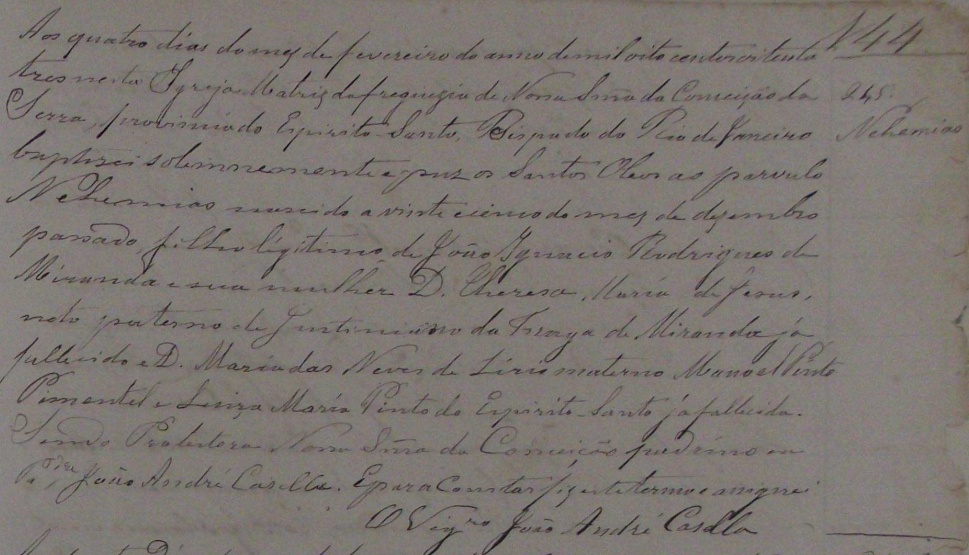 Aos quatro dias do mez de fevereiro do anno de mil oito centos oitenta
N 44
tres nesta Igreja Matriz da freguezia de Nossa Snra da Conceição da
245
Serra, provincia do Espirito-Santo, Bispado do Rio de Janeiro
Nehemias
baptizei solemnemente e puz os Santos Oleos ao parvulo
Nehemias nascido a vinte e cinco do mez de dezembro
passado, filho legitimo de João Ignacio Rodrigues de
Miranda e sua mulher D. Theresa Maria de Jesus,
neto paterno de Justiniano da Fraga de Miranda já
fallecido e D. Maria das Neves de Lirio materno Manoel Pinto
Pimentel e Luiza Maria Pinto do Espirito-Santo já fallecida.
Sendo Protectora Nossa Snra da Conceição padrinho eu
Pe João André Casella. E para constar fiz este termo e assignei
O Vigro João André Casella